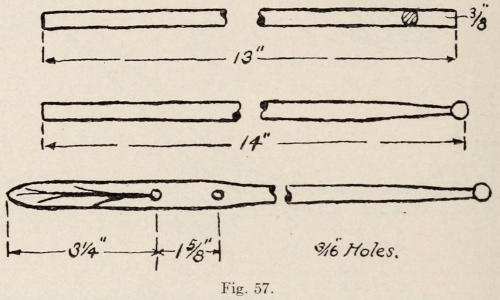 3/8"
13"
14"
3 1/4" 1 5/8" 3/16" Holes.
Fig. 57.